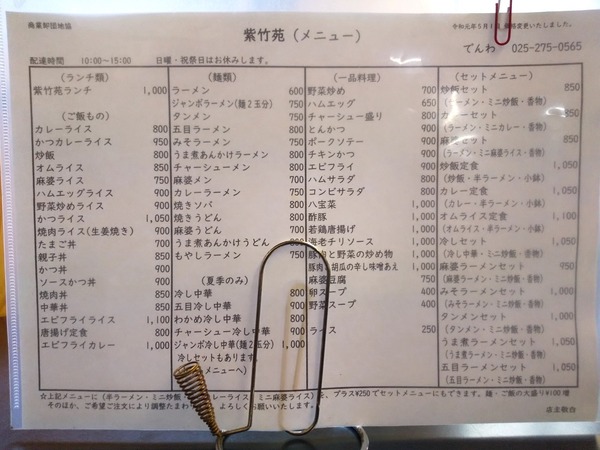 商業卸団地協
紫竹苑 (メニュー)
令和元年5月1 価格変更いたしました。
でんわ 025-275-0565
配達時間 10:00〜15:00 日曜・祝祭日はお休みします。
(ランチ類)
紫竹苑ランチ 1,000
(ご飯もの)
カレーライス 800
かつカレーライス 950
炒飯 800
オムライス 850
麻婆ライス 750
ハムエッグライス 900
野菜炒めライス 900
かつライス 1,050
焼肉ライス(生姜焼き) 900
たまご丼 700
親子丼 850
かつ丼 900
ソースかつ丼 900
焼肉丼 850
中華丼 850
エビフライライス 1,100
唐揚げ定食 800
エビフライカレー 1,000
(麺類)
ラーメン 600
ジャンボラーメン(麺2玉分) 750
タンメン 750
五目ラーメン 800
みそラーメン 750
うま煮あんかけラーメン 800
チャーシューメン 800
麻婆メン 750
カレーラーメン 750
焼きソバ 800
焼きうどん 800
麻婆うどん 700
うま煮あんかけうどん 800
もやしラーメン 750
(夏季のみ)
冷し中華 800
五目冷し中華 900
わかめ冷し中華 800
チャーシュー冷し中華 900
ジャンボ冷し中華(麺2玉分) 1,000
冷しセットもあります。
メニューへ)
(一品料理)
野菜炒め 700
ハムエッグ 650
チャーシュー盛り 800
とんかつ 900
ポークソテー 900
チキンかつ 900
エビフライ 900
ハムサラダ 800
コンビサラダ 800
八宝菜 1,000
酢豚 1,000
若鶏唐揚げ 1,000
海老チリソース 1,000
豚肉と野菜の炒め物 1,000
豚肉 胡瓜の辛し味噌あえ 1,000
麻婆豆腐 750
卵スープ 400
野菜スープ 400
ライス 250
(セットメニュー)
炒飯セット 850
(ラーメン・ミニ炒飯・香物)
カレーセット 850
(ラーメン・ミニカレー・香物)
麻婆セット 850
(ラーメン・ミニ麻婆ライス・香物)
炒飯定食 1,050
(炒飯・半ラーメン・小鉢)
カレー定食 1,050
(カレー・半ラーメン・小鉢)
オムライス定食 1,100
(オムライス・半ラーメン・小鉢)
冷しセット 1,050
(冷し中華・ミニ炒飯・香物)
麻婆ラーメンセット 950
(麻婆ラーメン・ミニ炒飯・香物)
みそラーメンセット 1,000
(みそラーメン・ミニ炒飯・香物)
タンメンセット 1,000
(タンメン・ミニ炒飯・香物)
うま煮ラーメンセット 1,050
(うま煮ラーメン・ミニ炒飯・香物)
五目ラーメンセット 1,050
(五目ラーメン・ミニ炒飯・香物)
☆上記メニューに (半ラーメン・ミニ炒飯・ カレーライス・ミニ麻婆ライス) を、プラス¥250でセットメニューにもできます。麺・ご飯の大盛り¥100増
そのほか、ご希望ご注文により調整たまわり よろしくお願いいたします。
店主敬白